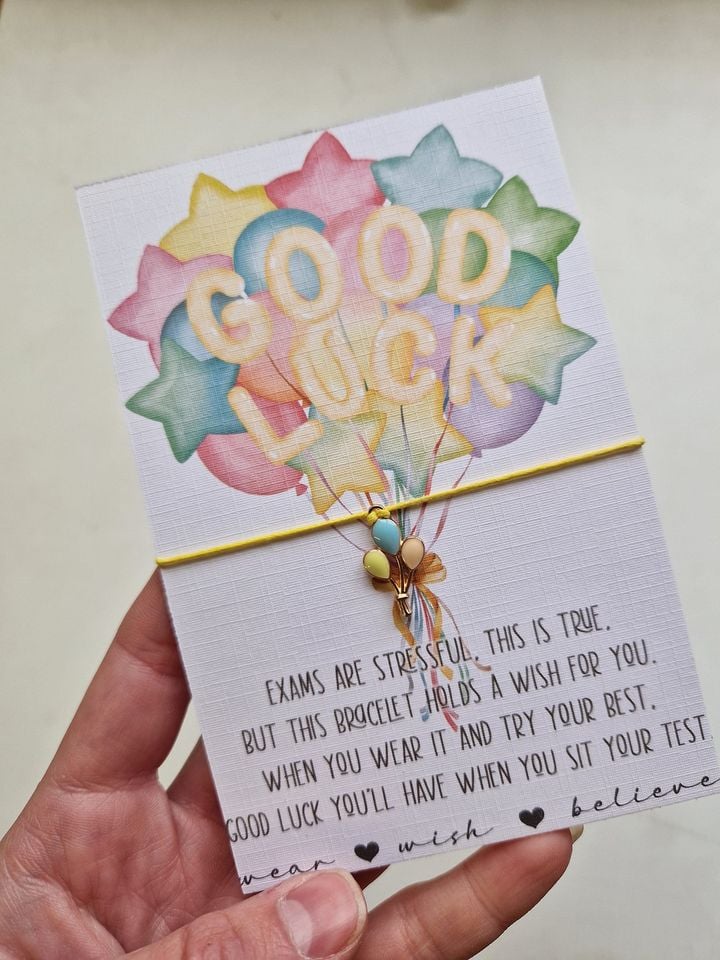 GOOD
LUCK
EXAMS ARE STRESSFUL. THIS IS TRUE.
BUT THIS BRACELET HOLDS A WISH FOR YOU.
WHEN YOU WEAR IT AND TRY YOUR BEST.
GOOD LUCK YOU'LL HAVE WHEN YOU SIT YOUR TEST.
wear ♥ wish ♥ believe